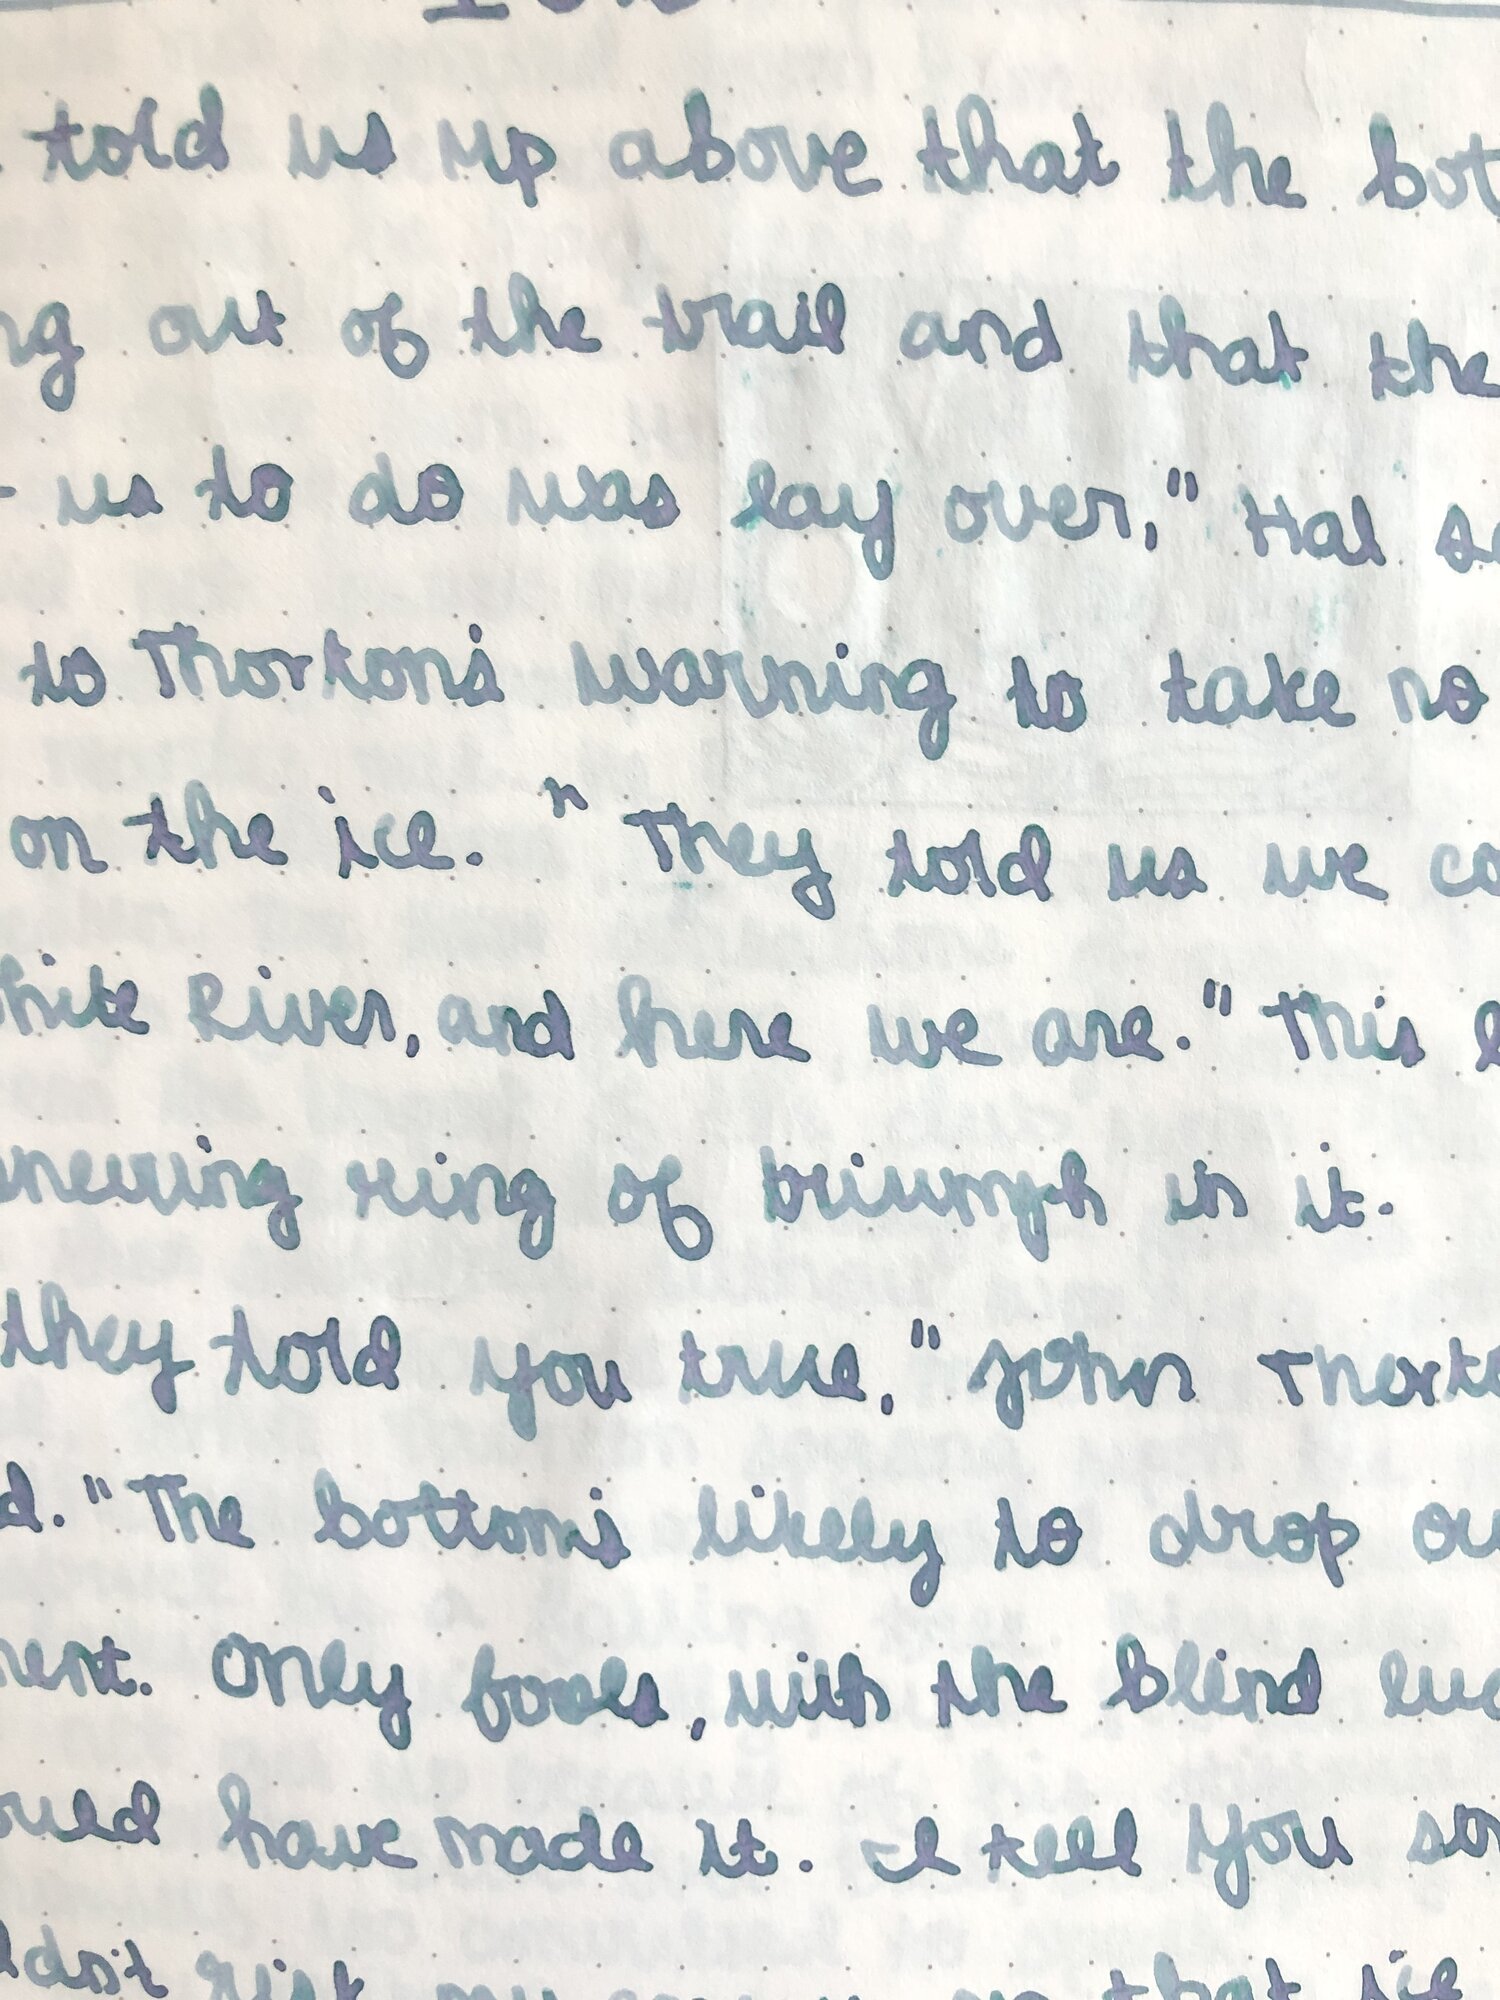 told us up above that the bot
ng out of the trail and that the
us to do was lay over," Hal sa
to Thorton's warning to take no
on the ice. "They told us we co
hite River, and here we are." This l
neering ring of triumph in it.
they told you true," John Thorto
d. "The bottom's likely to drop ou
ment. Only fools, with the blind luc
ould have made it. I tell you
ldn't risk my on that ice